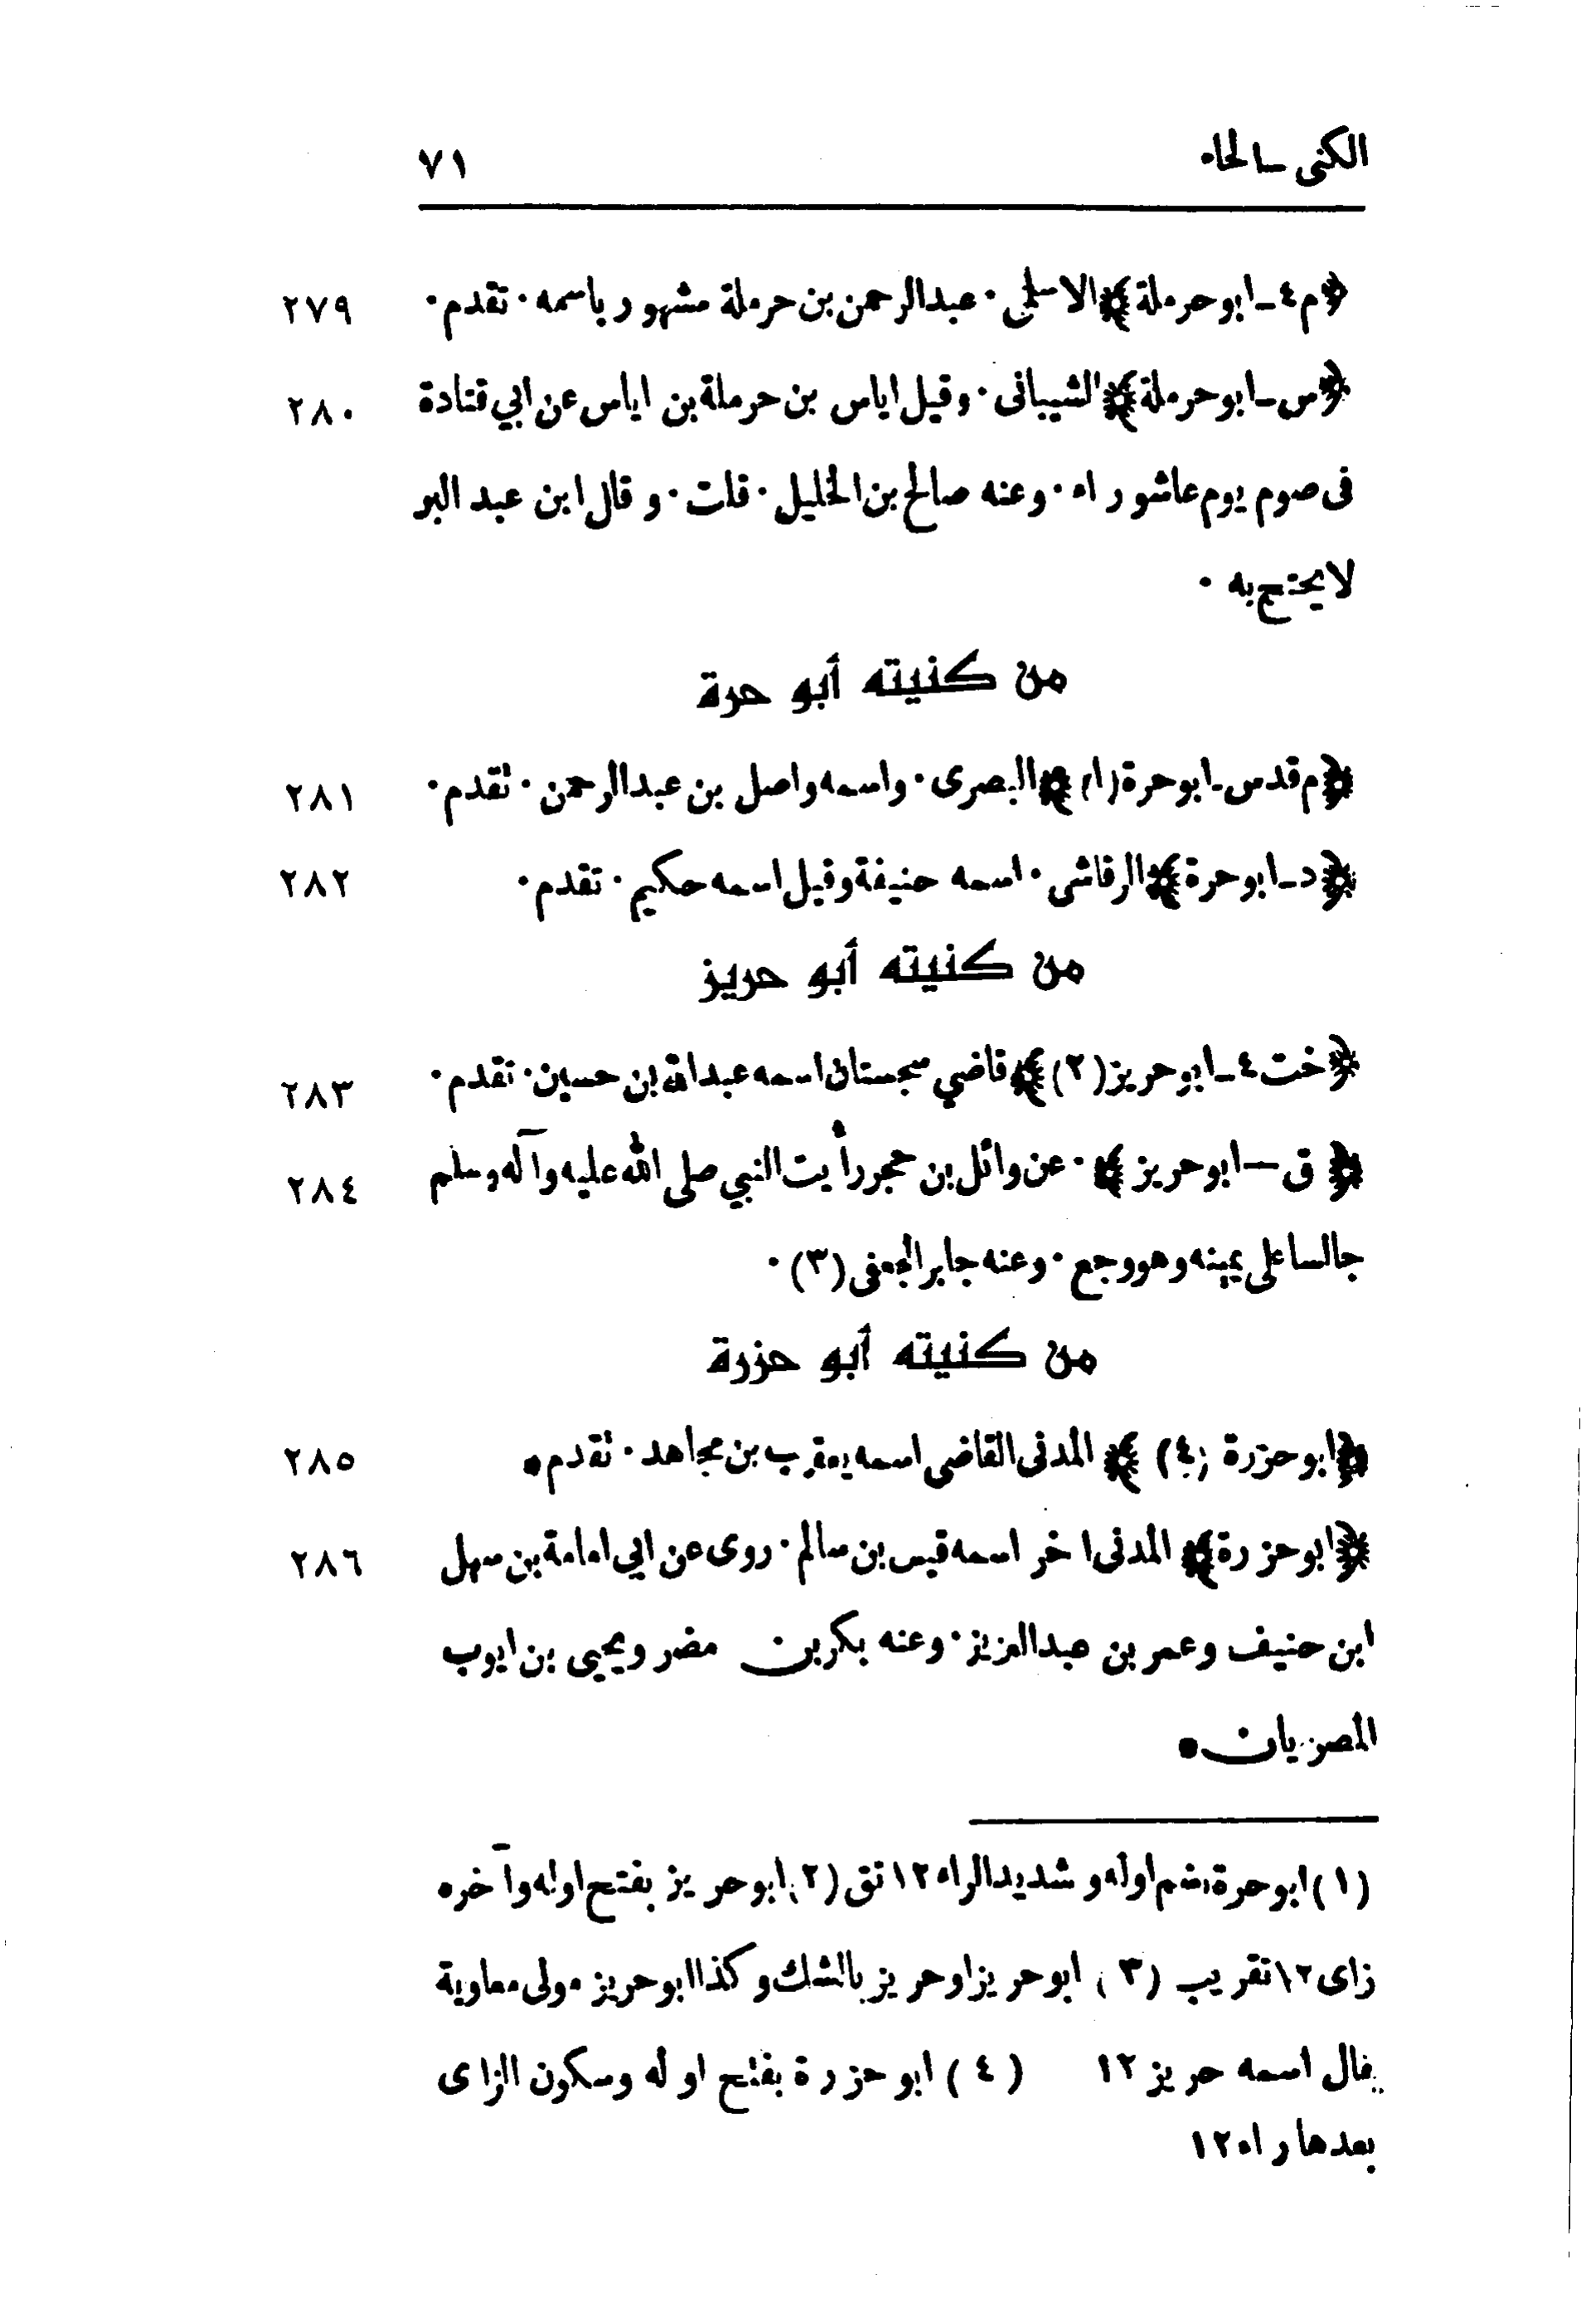 الكنى ـ الحاء ٧١
﴿م ٤ ـ ابو حرملة﴾ الاسلمي · عبد الرحمن بن حرملة مشهور باسمه · تقدم · ٢٧٩
﴿س ـ ابو حرملة﴾ الشيبانى · وقيل اياس بن حرملة بن اياس عن ابي قتادة ٢٨٠
فى صوم يوم عاشوراء · وعنه صالح بن الخليل · قلت · وقال ابن عبد البر
لا يحتج به ·
من كنيته أبو حرة
﴿م قد س ـ ابو حرة (١)﴾ البصرى · واسمه واصل بن عبد الرحمن · تقدم · ٢٨١
﴿د ـ ابو حرة﴾ الرقاشى · اسمه حنيفة وقيل اسمه حكيم · تقدم · ٢٨٢
من كنيته أبو حريز
﴿خت ٤ ـ ابو حريز (٢)﴾ قاضي سجستان اسمه عبد الله بن حسين · تقدم · ٢٨٣
﴿ق — ابو حريز﴾ · عن وائل بن حجر رأيت النبي صلى الله عليه وآله وسلم ٢٨٤
جالسا على يمينه وهو وجع · وعنه جابر الجعفى (٣) ·
من كنيته أبو حزرة
﴿ابو حزرة (٤)﴾ المدنى القاضى اسمه يعقوب بن مجاهد · تقدم • ٢٨٥
﴿ابو حزرة﴾ المدنى اخر اسمه قيس بن سالم · روى عن ابي امامة بن سهل ٢٨٦
ابن حنيف وعمر بن عبد العزيز · وعنه بكر بن مضر ويحيى بن ايوب
المصريان •
(١) ابو حرة بضم اوله و شديد الراء ١٢ تق (٢) ابو حريز بفتح اوله وآخره
زاى ١٢ تقريب (٣) ابو حريز او حريز بالشك وكذا ابو حريز مولى معاوية
يقال اسمه حريز ١٢ (٤) ابو حزرة بفتح اوله وسكون الزاى
بعدها راء ١٢